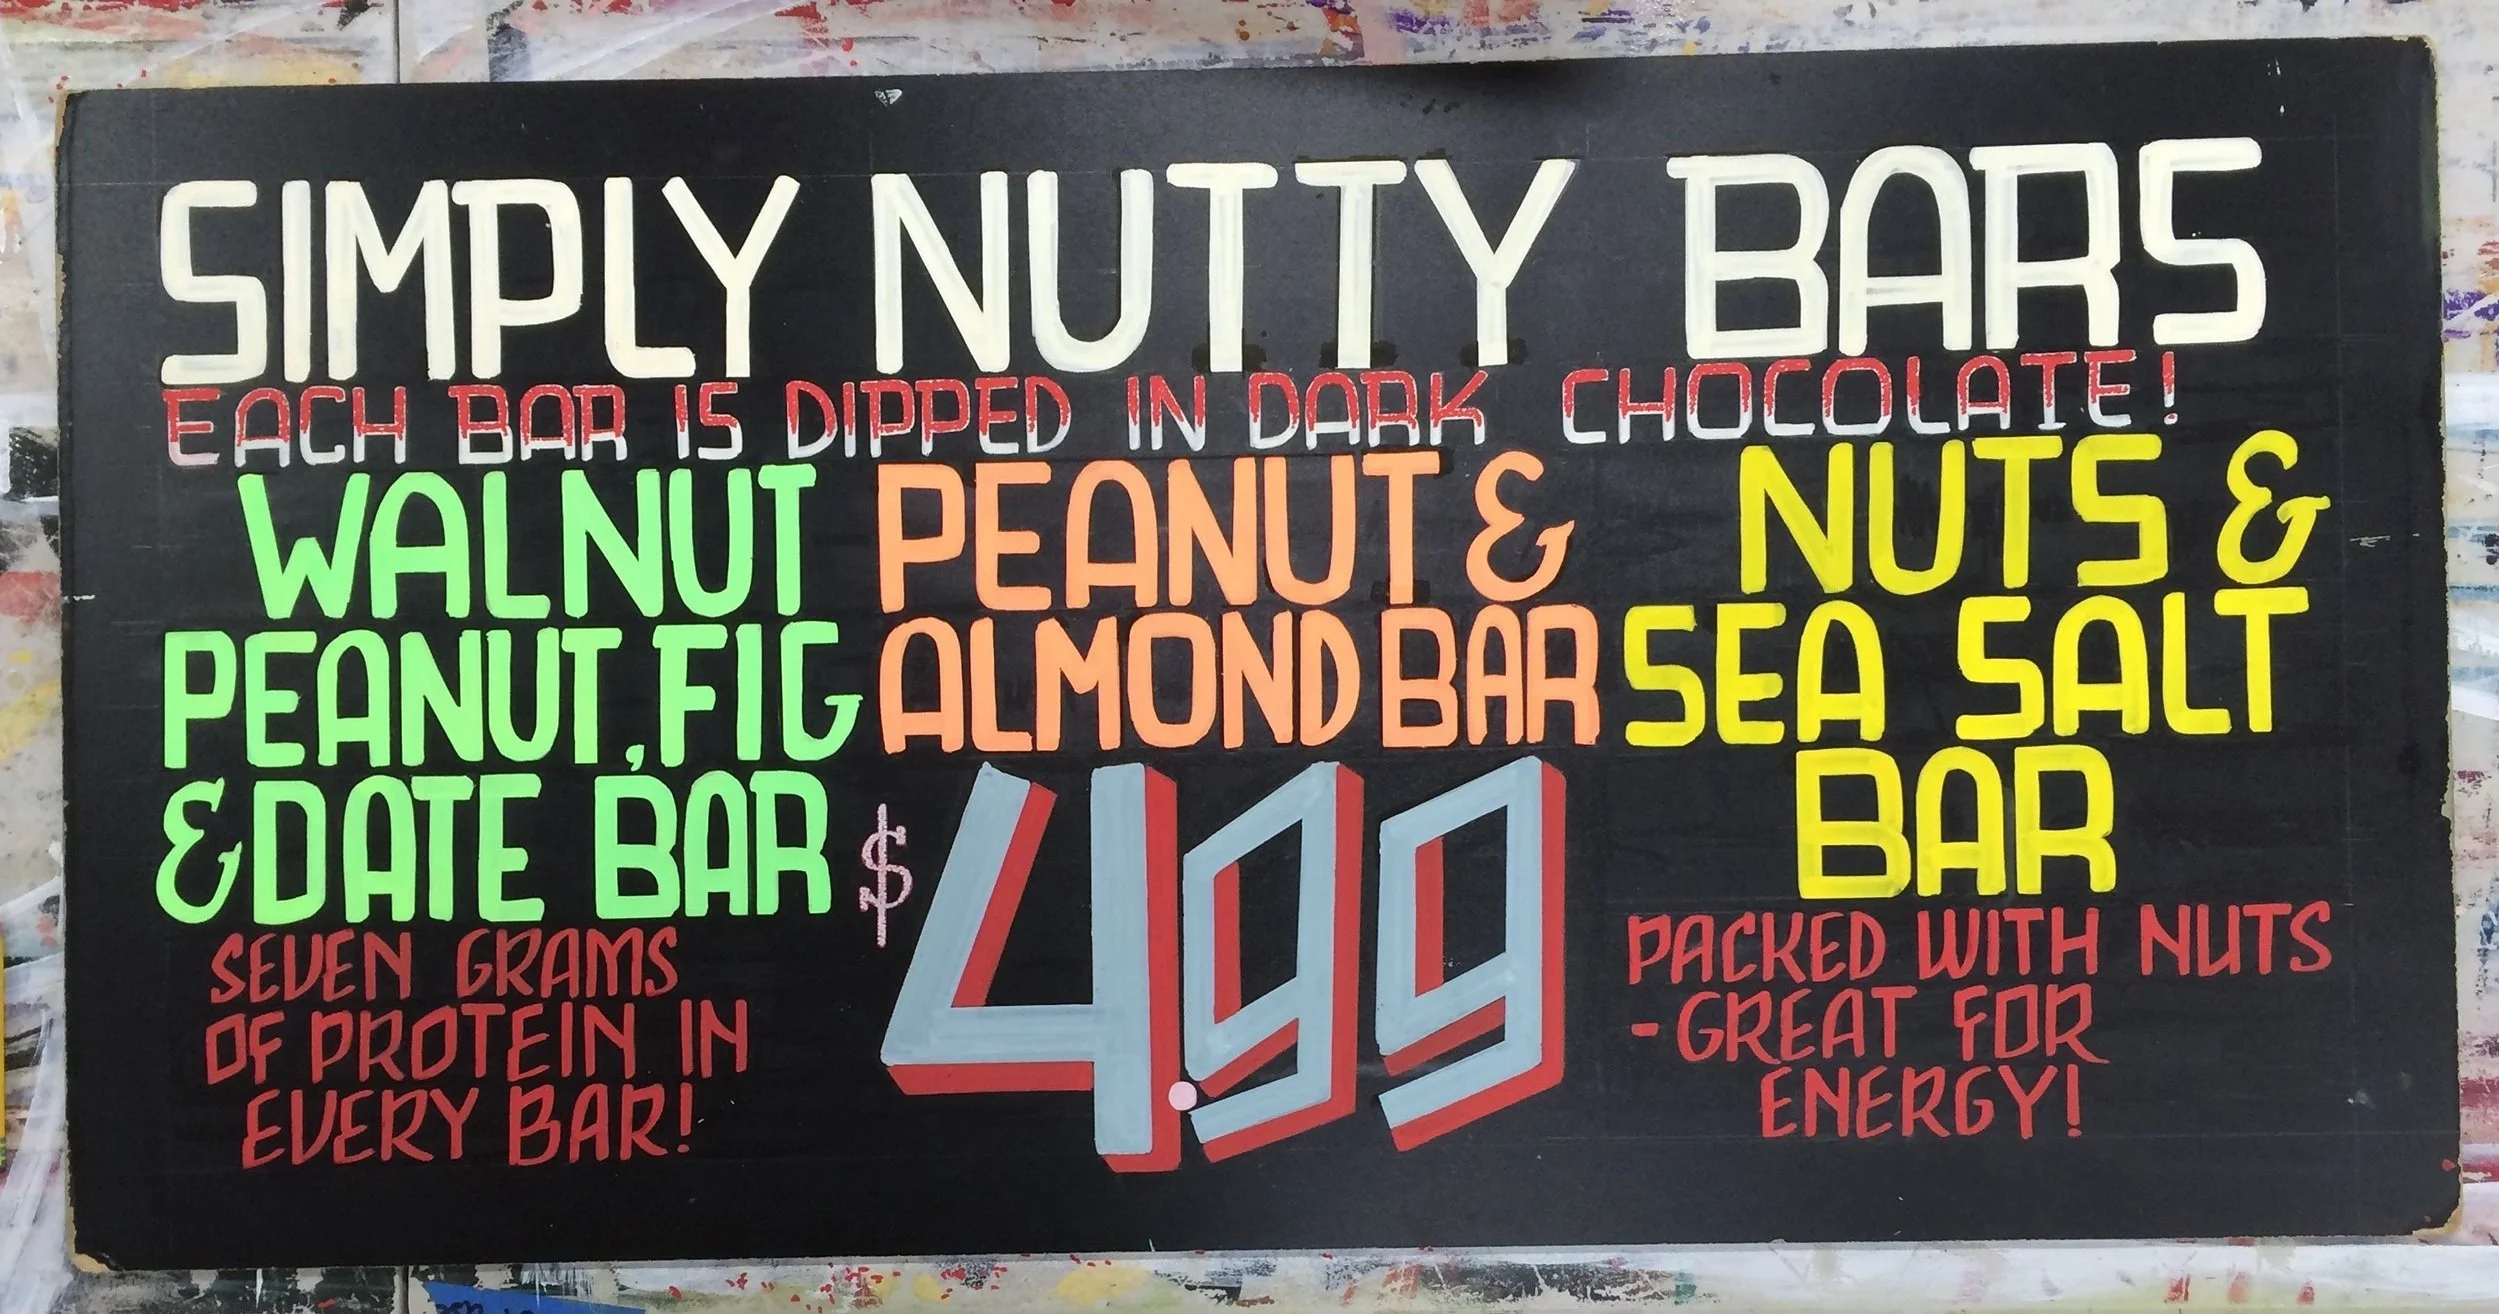 SIMPLY NUTTY BARS
EACH BAR IS DIPPED IN DARK CHOCOLATE!
WALNUT
PEANUT, FIG
& DATE BAR
SEVEN GRAMS
OF PROTEIN IN
EVERY BAR!
PEANUT &
ALMOND BAR
$4.99
NUTS &
SEA SALT
BAR
PACKED WITH NUTS
-GREAT FOR
ENERGY!